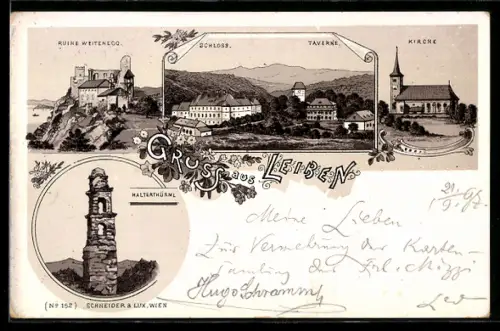 RUINE WEITENEGG.
SCHLOSS.
TAVERNE.
KIRCHE
GRUSS AUS LEIBEN
HALTERTHÜRML
21.
9.
Meine Lieben
Zur Vermehrung der Karten-
sammlung der Frl. Mizzi
Hugo Schramm
(No 152) SCHNEIDER & LUX, WIEN